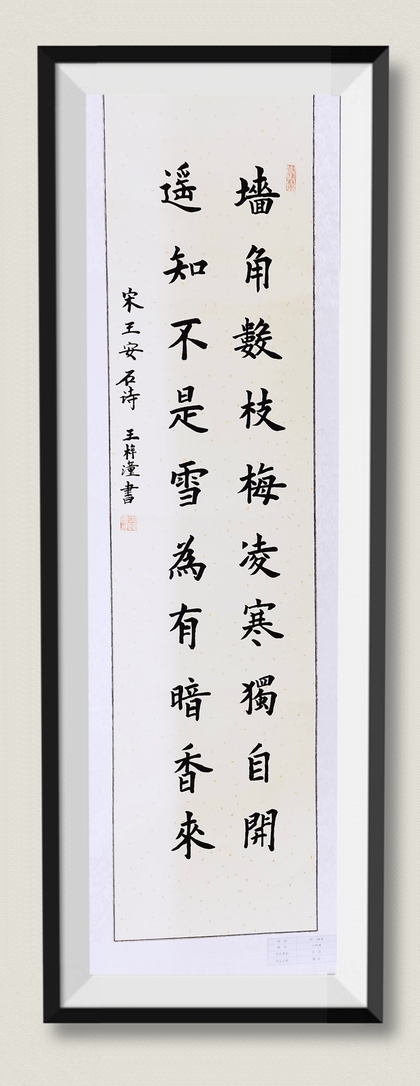 墻角數枝梅凌寒獨自開
遥知不是雪為有暗香來
宋王安石诗 王梓潼書